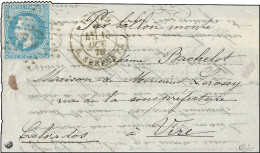 Par ballon monté
OCT.
Madame Bachelot
Maison de Monsieur Lerouey
rue de la sous préfecture
à Vire
Calvados